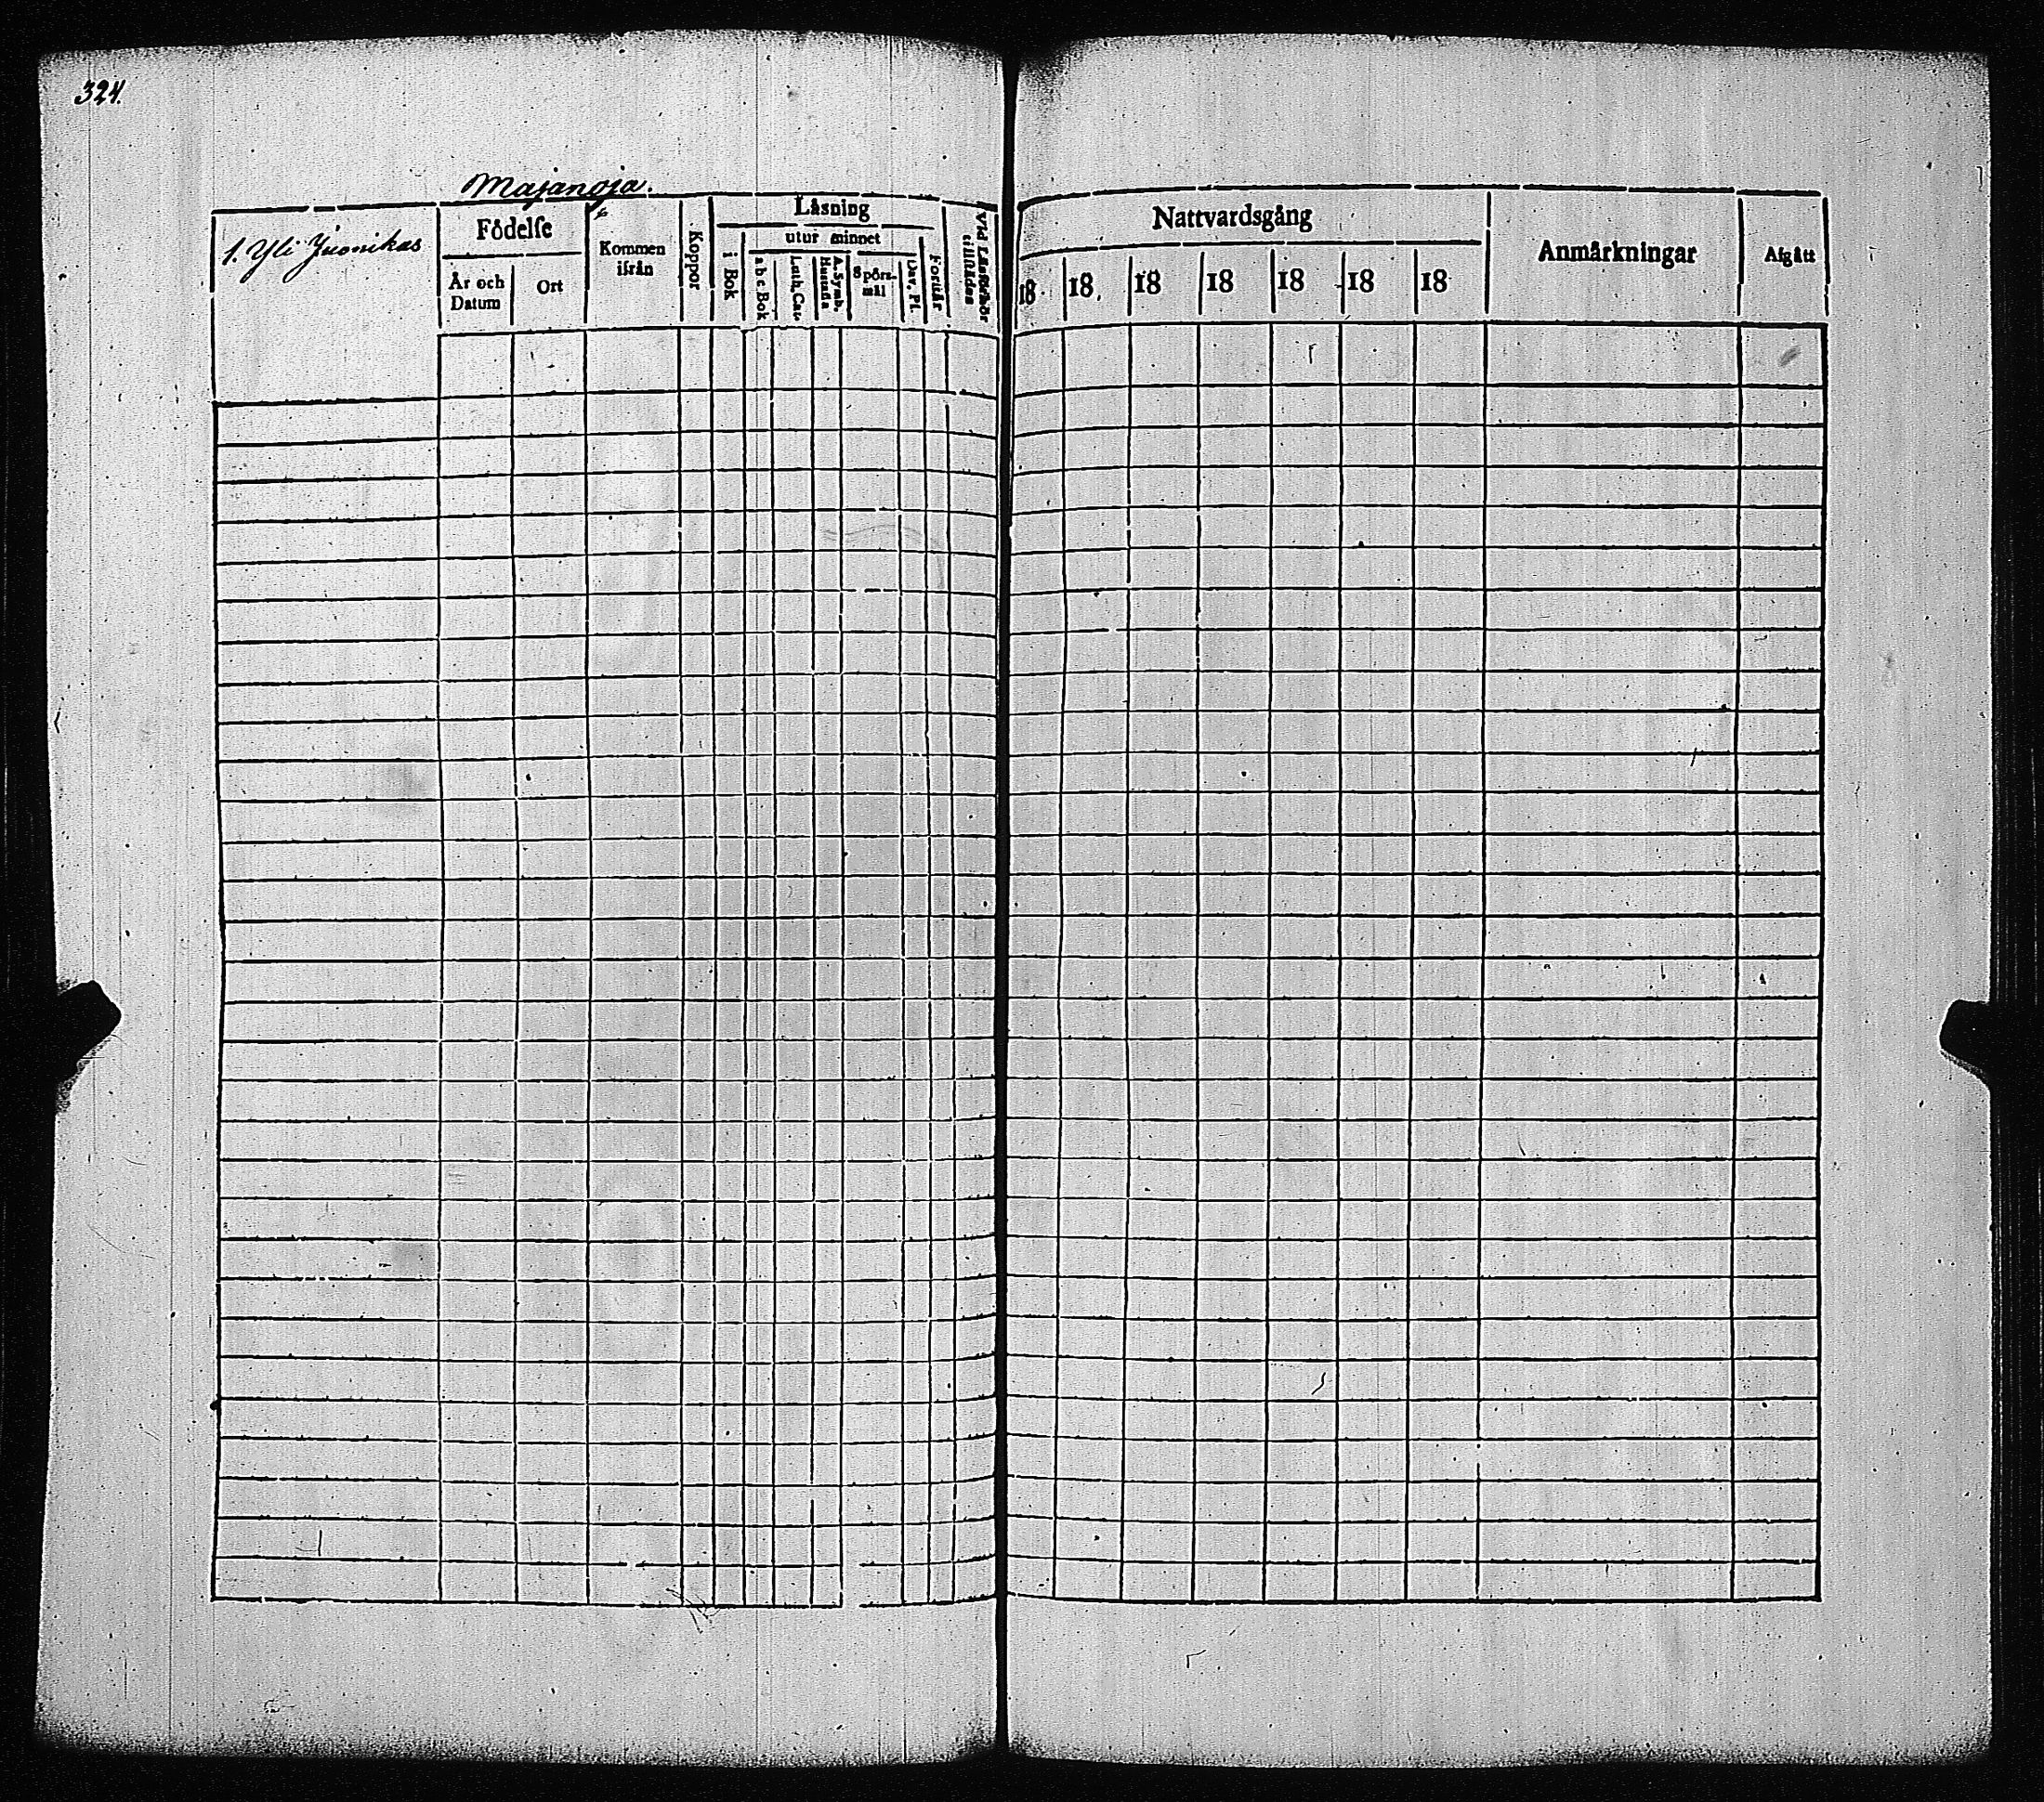 324.
Majanoja.
1. Yli Juonikas
Födelse
År och Datum
Ort
Kommen ifrån
Koppor
Läsning
i Bok
utur minnet
a b c Bok
Luth. Cat.
A. Symb. Hustafla
Spörs-mål
Dav. Ps.
Förstår
Vid Läsförhör tillstädes
Nattvardsgång
18
18
18
18
18
18
18
Anmärkningar
Afgått